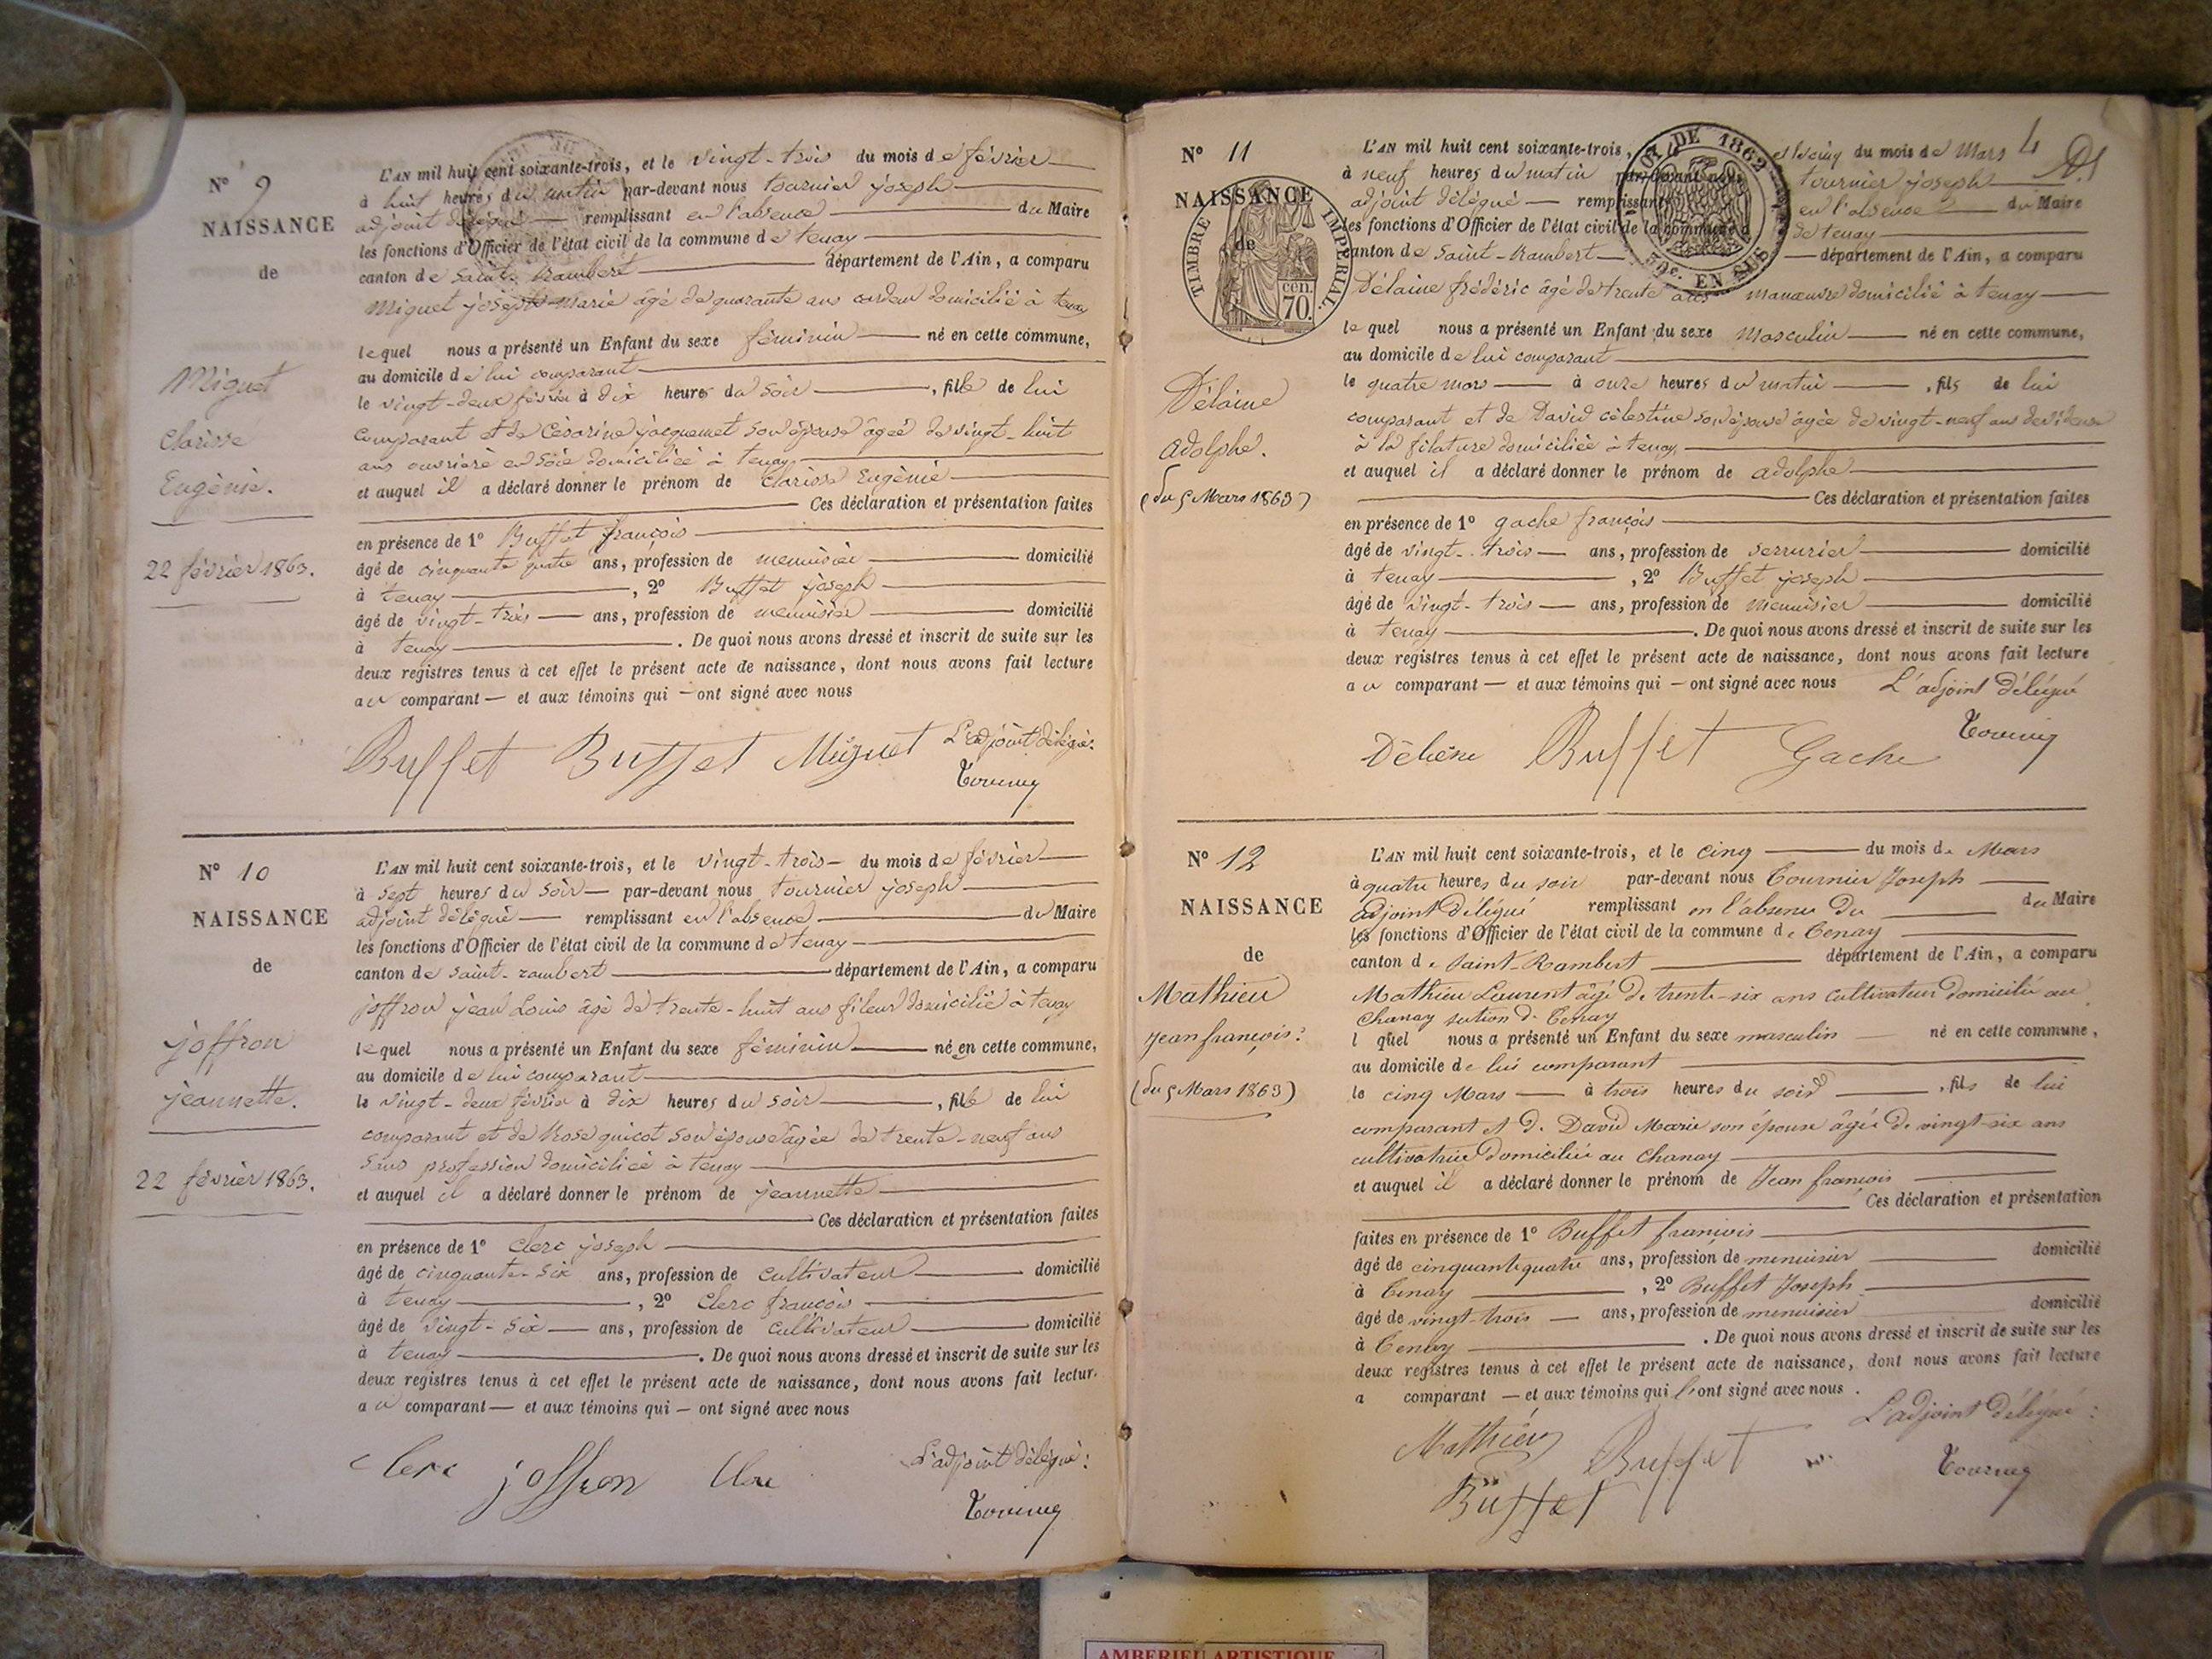 N° 9
NAISSANCE
de
Miguet
Clarisse
Eugènie.
22 février 1863.
L'AN mil huit cent soixante-trois, et le vingt-trois du mois de février
à huit heures du matin par-devant nous tournier joseph
adjoint délégué remplissant en l'absence du Maire
les fonctions d'Officier de l'état civil de la commune de tenay
canton de saint-rambert département de l'Ain, a comparu
Miguet joseph-marie âgé de quarante ans cardeur domicilié à tenay
lequel nous a présenté un Enfant du sexe féminin né en cette commune,
au domicile de lui comparant
le vingt-deux février à dix heures du soir , fille de lui
comparant et de Césarine jacquemet son épouse âgée de vingt-huit
ans ouvrière en soie domiciliée à tenay
et auquel il a déclaré donner le prénom de Clarisse Eugènie
Ces déclaration et présentation faites
en présence de 1° Buffet françois
âgé de cinquante quatre ans, profession de menuisier domicilié
à tenay , 2° Buffet joseph
âgé de vingt-trois ans, profession de menuisier domicilié
à tenay . De quoi nous avons dressé et inscrit de suite sur les
deux registres tenus à cet effet le présent acte de naissance, dont nous avons fait lecture
au comparant — et aux témoins qui — ont signé avec nous
Buffet Buffet Miguet L'adjoint délégué:
N° 10
NAISSANCE
de
joffron
jeannette.
22 février 1863.
L'AN mil huit cent soixante-trois, et le vingt-trois du mois de février
à sept heures du soir par-devant nous tournier joseph
adjoint délégué remplissant en l'absence du Maire
les fonctions d'Officier de l'état civil de la commune de tenay
canton de saint-rambert département de l'Ain, a comparu
joffron jean Louis âgé de trente-huit ans fileur domicilié à tenay
lequel nous a présenté un Enfant du sexe féminin né en cette commune,
au domicile de lui comparant
le vingt-deux février à dix heures du soir , fille de lui
comparant et de Rose guicot son épouse âgée de trente-neuf ans
sans profession domiciliée à tenay
et auquel il a déclaré donner le prénom de jeannette
Ces déclaration et présentation faites
en présence de 1° Clerc joseph
âgé de cinquante-six ans, profession de cultivateur domicilié
à tenay , 2° Clerc françois
âgé de vingt-six ans, profession de cultivateur domicilié
à tenay . De quoi nous avons dressé et inscrit de suite sur les
deux registres tenus à cet effet le présent acte de naissance, dont nous avons fait lectur.
au comparant — et aux témoins qui — ont signé avec nous
Clerc joffron Clerc L'adjoint délégué:
4
N° 11
NAISSANCE
de
TIMBRE IMPÉRIAL.
cen. 70.
Délaine
adolphe.
(du 5 Mars 1863)
DE 1862
EN SUS
L'AN mil huit cent soixante-trois, et le cinq du mois de Mars
à neuf heures du matin par-devant nous tournier joseph
adjoint délégué remplissant en l'absence du Maire
les fonctions d'Officier de l'état civil de la commune de tenay
canton de saint-rambert département de l'Ain, a comparu
Délaine frédéric âgé de trente ans manœuvre domicilié à tenay
lequel nous a présenté un Enfant du sexe masculin né en cette commune,
au domicile de lui comparant
le quatre mars à onze heures du matin , fils de lui
comparant et de David célestine son épouse âgée de vingt-neuf ans devideuse
à la filature domiciliée à tenay
et auquel il a déclaré donner le prénom de adolphe
Ces déclaration et présentation faites
en présence de 1° gache françois
âgé de vingt-trois ans, profession de serrurier domicilié
à tenay , 2° Buffet joseph
âgé de vingt-trois ans, profession de menuisier domicilié
à tenay . De quoi nous avons dressé et inscrit de suite sur les
deux registres tenus à cet effet le présent acte de naissance, dont nous avons fait lecture
au comparant — et aux témoins qui — ont signé avec nous L'adjoint délégué
Buffet Gache
N° 12
NAISSANCE
de
Mathieu
Jean françois:
(du 5 Mars 1863)
L'AN mil huit cent soixante-trois, et le cinq du mois de Mars
à quatre heures du soir par-devant nous Tournier Joseph
adjoint Délégué remplissant en l'absence du du Maire
les fonctions d'Officier de l'état civil de la commune de Tenay
canton de Saint-Rambert département de l'Ain, a comparu
Mathieu Laurent âgé de trente-six ans cultivateur domicilié au
Chanay section de Tenay
l quel nous a présenté un Enfant du sexe masculin né en cette commune,
au domicile de lui comparant
le cinq Mars à trois heures du soir , fils de lui
comparant et de David Marie son épouse âgée de vingt-six ans
cultivatrice domiciliée au Chanay
et auquel il a déclaré donner le prénom de Jean françois
Ces déclaration et présentation
faites en présence de 1° Buffet françois
âgé de cinquante quatre ans, profession de menuisier domicilié
à Tenay , 2° Buffet Joseph
âgé de vingt-trois ans, profession de menuisier domicilié
à Tenay . De quoi nous avons dressé et inscrit de suite sur les
deux registres tenus à cet effet le présent acte de naissance, dont nous avons fait lecture
a comparant — et aux témoins qui l'ont signé avec nous.
L'adjoint Délégué:
Mathieu Buffet
Buffet
AMBERIEU ARTISTIQUE